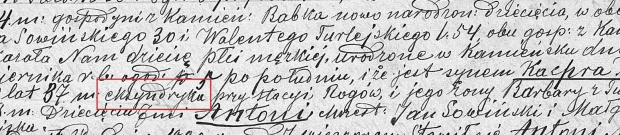 4 m. gospodyni z Kamień: Babka nowo narodzon: dziecięcia, w obe
Sowińskiego 30 i Walentego Turlejskiego l. 54 obu gosp: z Kam
Nam dziecię płci męzkiej, urodzone w Kamieńsku dn
r. b. o godz: po południu, i że jest synem Kacpra
lat 37 m. przy stacyi Rogów, i jego żony Barbary z
m. Dziecięciu Imię Antoni Chrzest: Jan Sowiński i Małg